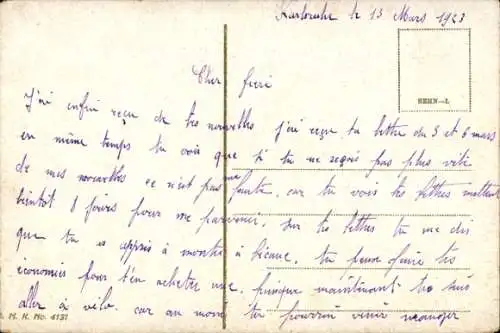 Karlsruhe le 13 Mars 1923
Cher frere
J'ai enfin reçu de tes nouvelles j'ai reçu ta lettre du 3 et 6 mars
en même temps tu vois que si tu ne reçois pas plus vite
de mes nouvelles ce n'est pas ma faute. car tu vois tes lettres mettent
bientôt 8 jours pour me parvenir. sur tes lettres tu me dis
que tu a appris à monté à bécane, tu peux faire tes
économies pour t'en acheter une. puisque maintenant tu sais
aller à vélo. car au moins tu pourrai venir manger
REHN—I.
M. K. No. 4137